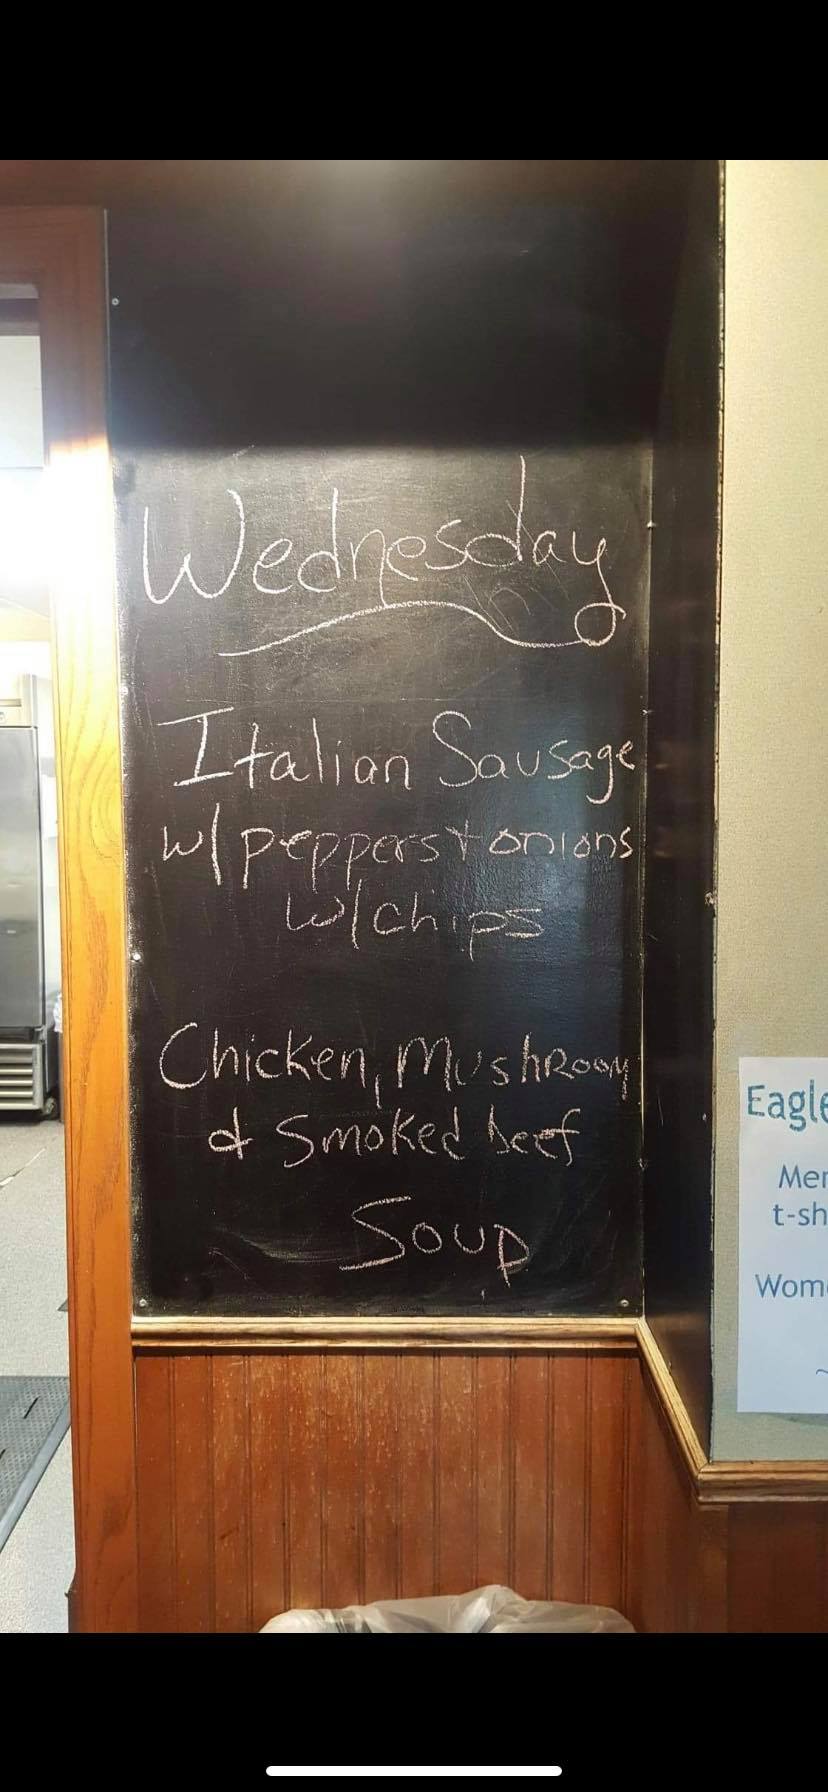 Wednesday
Italian Sausage
w/ peppers + onions
w/ chips
Chicken, Mushroom
& Smoked beef
Soup
Eagle
Mer
t-sh
Wom
~